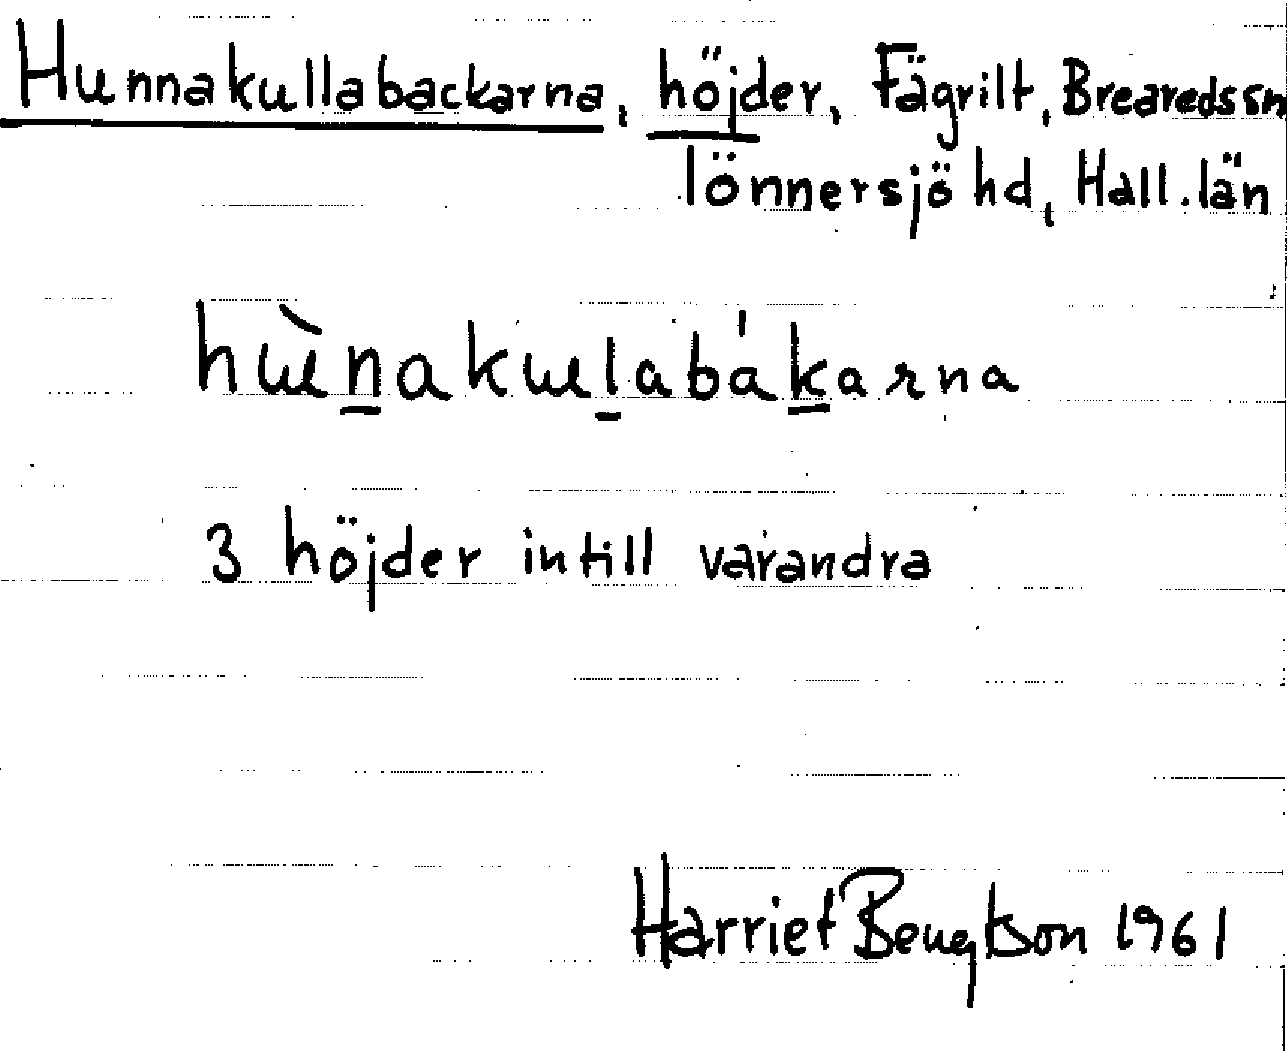 Hunnakullabackarna, höjder, Fägrilt, Brearedssn
Tönnersjö hd, Hall. län
hɯ̀n̲akɯl̲abák̲arna
3 höjder intill varandra
Harriet Bengtson 1961